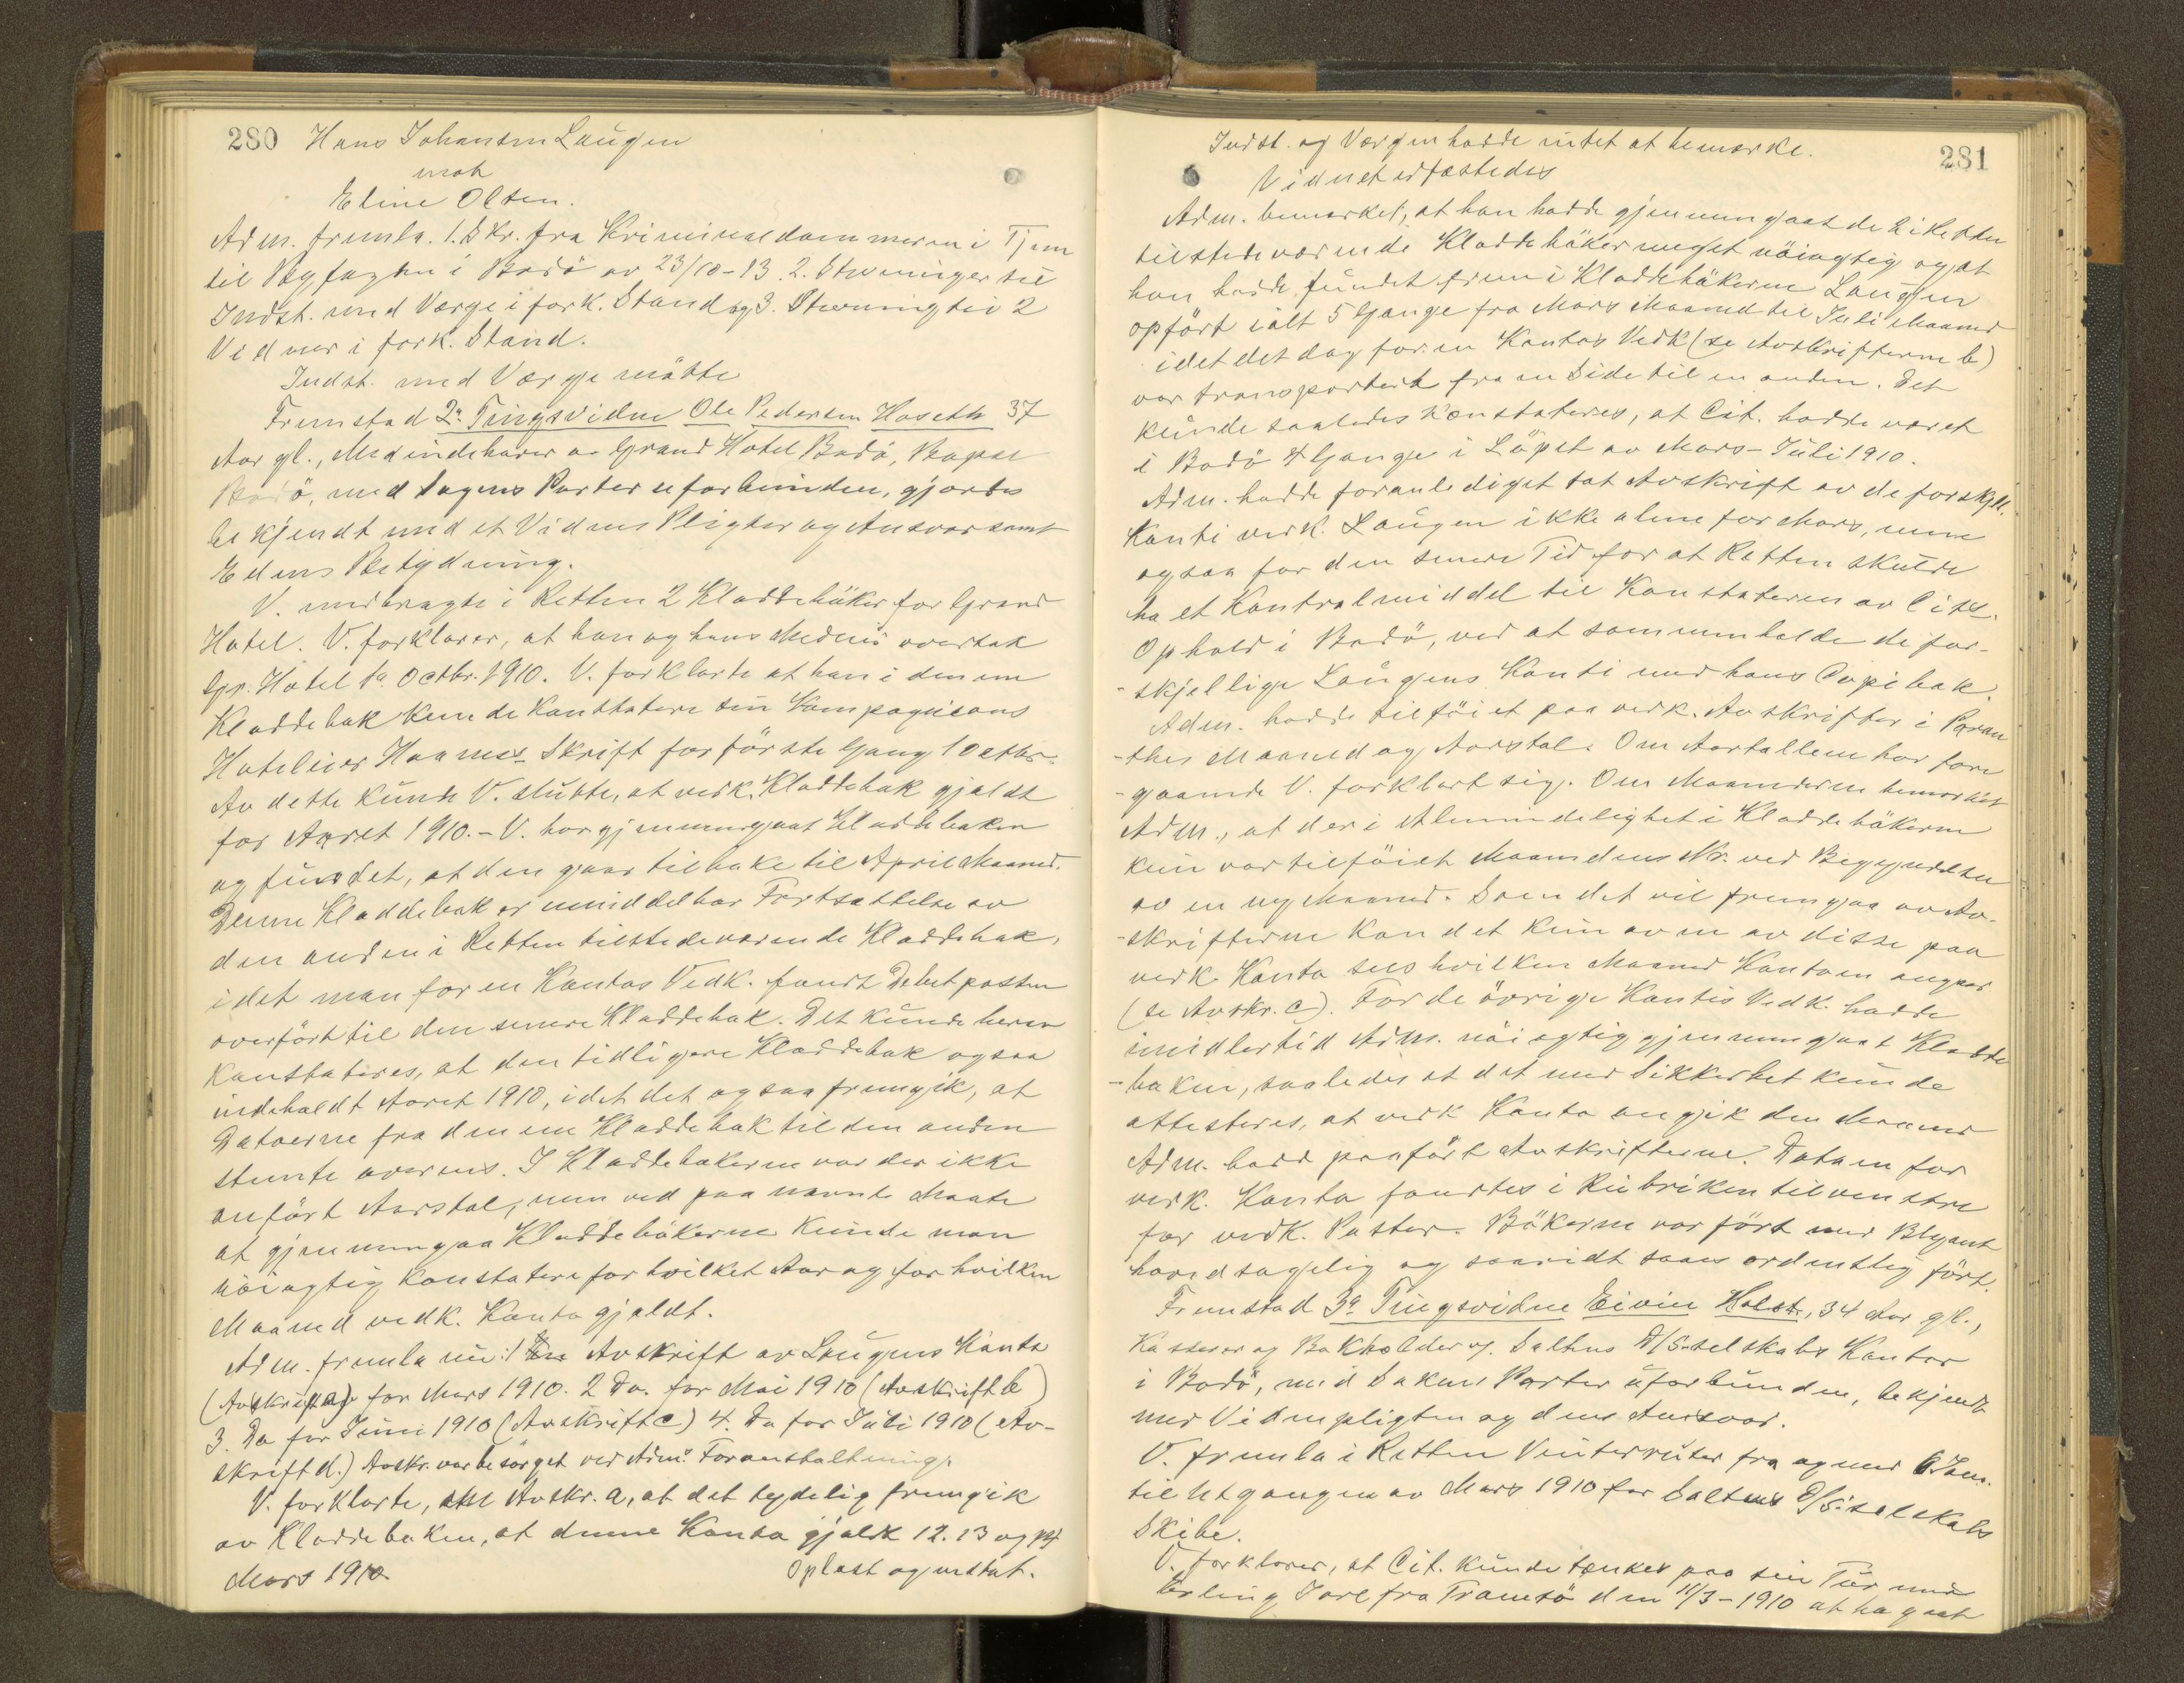 280 Hans Johansen Laugen
mot
Eline Olsen.
Adm. fremla. 1. D Kr. fra Kriminaldommeren i Tjen
til Byfogden i Bodö av 23/10-13. 2. Stevninger til
Indst. med Værge i fork. Stand og 3. Stevning til 2
Vidner i fork. Stand.
Indst. med Værge mötte
Fremstod 2. Tingsvidne Ole Pedersen Hoseth 37
Aar gl., Medindehaver av Grand Hotel Bodö, Bopæl
Bodö, med Sagens Parter uforbunden, gjordes
bekjendt med et Vidnes Pligter og Ansvar samt
Edens Betydning.
V. medbragte i Retten 2 Kladdeböker for Grand
Hotel. V. forklarer, at han og hans Medeier overtok
Gr. Hotel 1. Octbr. 1910. V. forklarte at han i den ene
Kladdebok kunde konstatere sin Kompagnions
Hotelier Haarnes Skrift for förste Gang 1 octbr.
Av dette kunde V. slutte, at vedk. Kladdebok gjaldt
for Aaret 1910. - V. har gjennemgaat Kladdeboken
og fundet, at den gaar tilbake til April Maaned.
Denne Kladdebok er umiddelbar Fortsættelse av
den anden i Retten tilstedeværende Kladdebok,
idet man for en Kontos Vedk. fandt Debetposten
overfört til den senere Kladdebok. Det kunde herav
konstateres, at den tidligere Kladdebok ogsaa
indeholdt Aaret 1910, idet det ogsaa fremgik, at
Datoerne fra den ene Kladdebok til den anden
stemte overens. I Kladdebökerne var der ikke
anfört Aarstal, men ved paa nævnte Maate
at gjennemgaa Kladdebökerne kunde man
nöiagtig konstatere for hvilket Aar og for hvilken
Maaned vedk. Konto gjaldt.
Adm. fremla nu: 1 Avskrift av Laugens Konto
(Avskrift a) for Mars 1910. 2 Do. for Mai 1910 (Avskrift b)
3. Do for Juni 1910 (Avskrift c) 4. Do for Juli 1910 (Av-
skrift d.) Avskr. var besörget ved Adm.s Foranstaltning.
V. forklarte, Avskr. a, at det tydelig fremgik
av Kladdeboken, at denne Konto gjaldt 12. 13 og 14
Mars 1910. Oplæst og vedtat.
Indst. og Værgen hadde intet at bemærke. 281
Vidnet edfæstedes
Adm. bemerket, at han hadde gjennemgaat de 2 i Retten
tilstedeværende Kladdeböker meget nöiagtig og at
han hadde fundet frem i Kladdebökerne Laugen
opfört ialt 5 Gange fra Mars Maaned til Juli Maaned
idet det dog for en Kontos Vedk (se Avskrifterne b)
var transportert fra en Side til en anden. Det
kunde saaledes konstateres, at Cit. hadde været
i Bodö 4 Gange i Löpet av Mars-Juli 1910.
Adm. hadde foranlediget tat Avskrift av de forskjell.
Konti vedk. Laugen ikke alene for Mars, men
ogsaa for den senere Tid for at Retten skulde
ha et Kontrolmiddel til Konstateren av Cits.
Ophold i Bodö, ved at sammenholde de for-
-skjellige Laugens Konti med hans Copibok.
Adm. hadde tilföiet paa vedk. Avskrifter i Paran
-thes Maaned og Aarstal. Om Aartallene har fore
-gaaende V. forklart sig. Om Maanederne bemerket
Adm., at der i Almindelighet i Kladdebökerne
kun var tilföiet Maanedens Nr. ved Begyndelsen
av en ny Maaned. Som det vil fremgaa av Av-
-skrifterne kan det kun av en av disse paa
vedk. Konto sees hvilken Maaned Kontoen angaar
(se Avskr. c). For de övrige Kontis Vedk. hadde
imidlertid Adm. nöiagtig gjennemgaat Kladde
-boken, saaledes at det med Sikkerhet kunde
attesteres, at vedk Konto angik den Maaned
Adm. hadd paafört Avskrifterne. Datoen for
vedk. Konto fandtes i Rubriken tilvenstre
for vedk. Poster. Bökerne var fört med Blyant
hovedsagelig og saavidt saaes ordentlig fört.
Fremstod 3. Tingsvidne Eivin Holst, 34 Aar gl.,
Kasserer og Bokholder v. Saltens D/S-selskabs Kontor
i Bodö, med Sakens Parter uforbunden, bekjendt
med Vidnepligten og dens Ansvar.
V. fremla i Retten Vinterruter fra og med 6 Jan.
til Utgangen av Mars 1910 for Saltens D/S.-selskabs
Skibe.
V. forklarer, at Cit. kunde tænkes paa sin Tur med
Erling Jarl fra Tromsö den 11/3-1910 at ha gaat